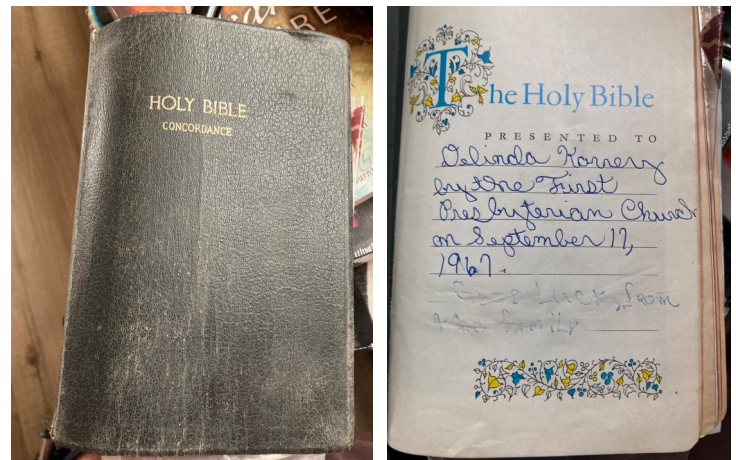 HOLY BIBLE
CONCORDANCE
The Holy Bible
PRESENTED TO
Delinda
by the First
Presbyterian Church
on September 17,
1967.
Good Luck, from
the family